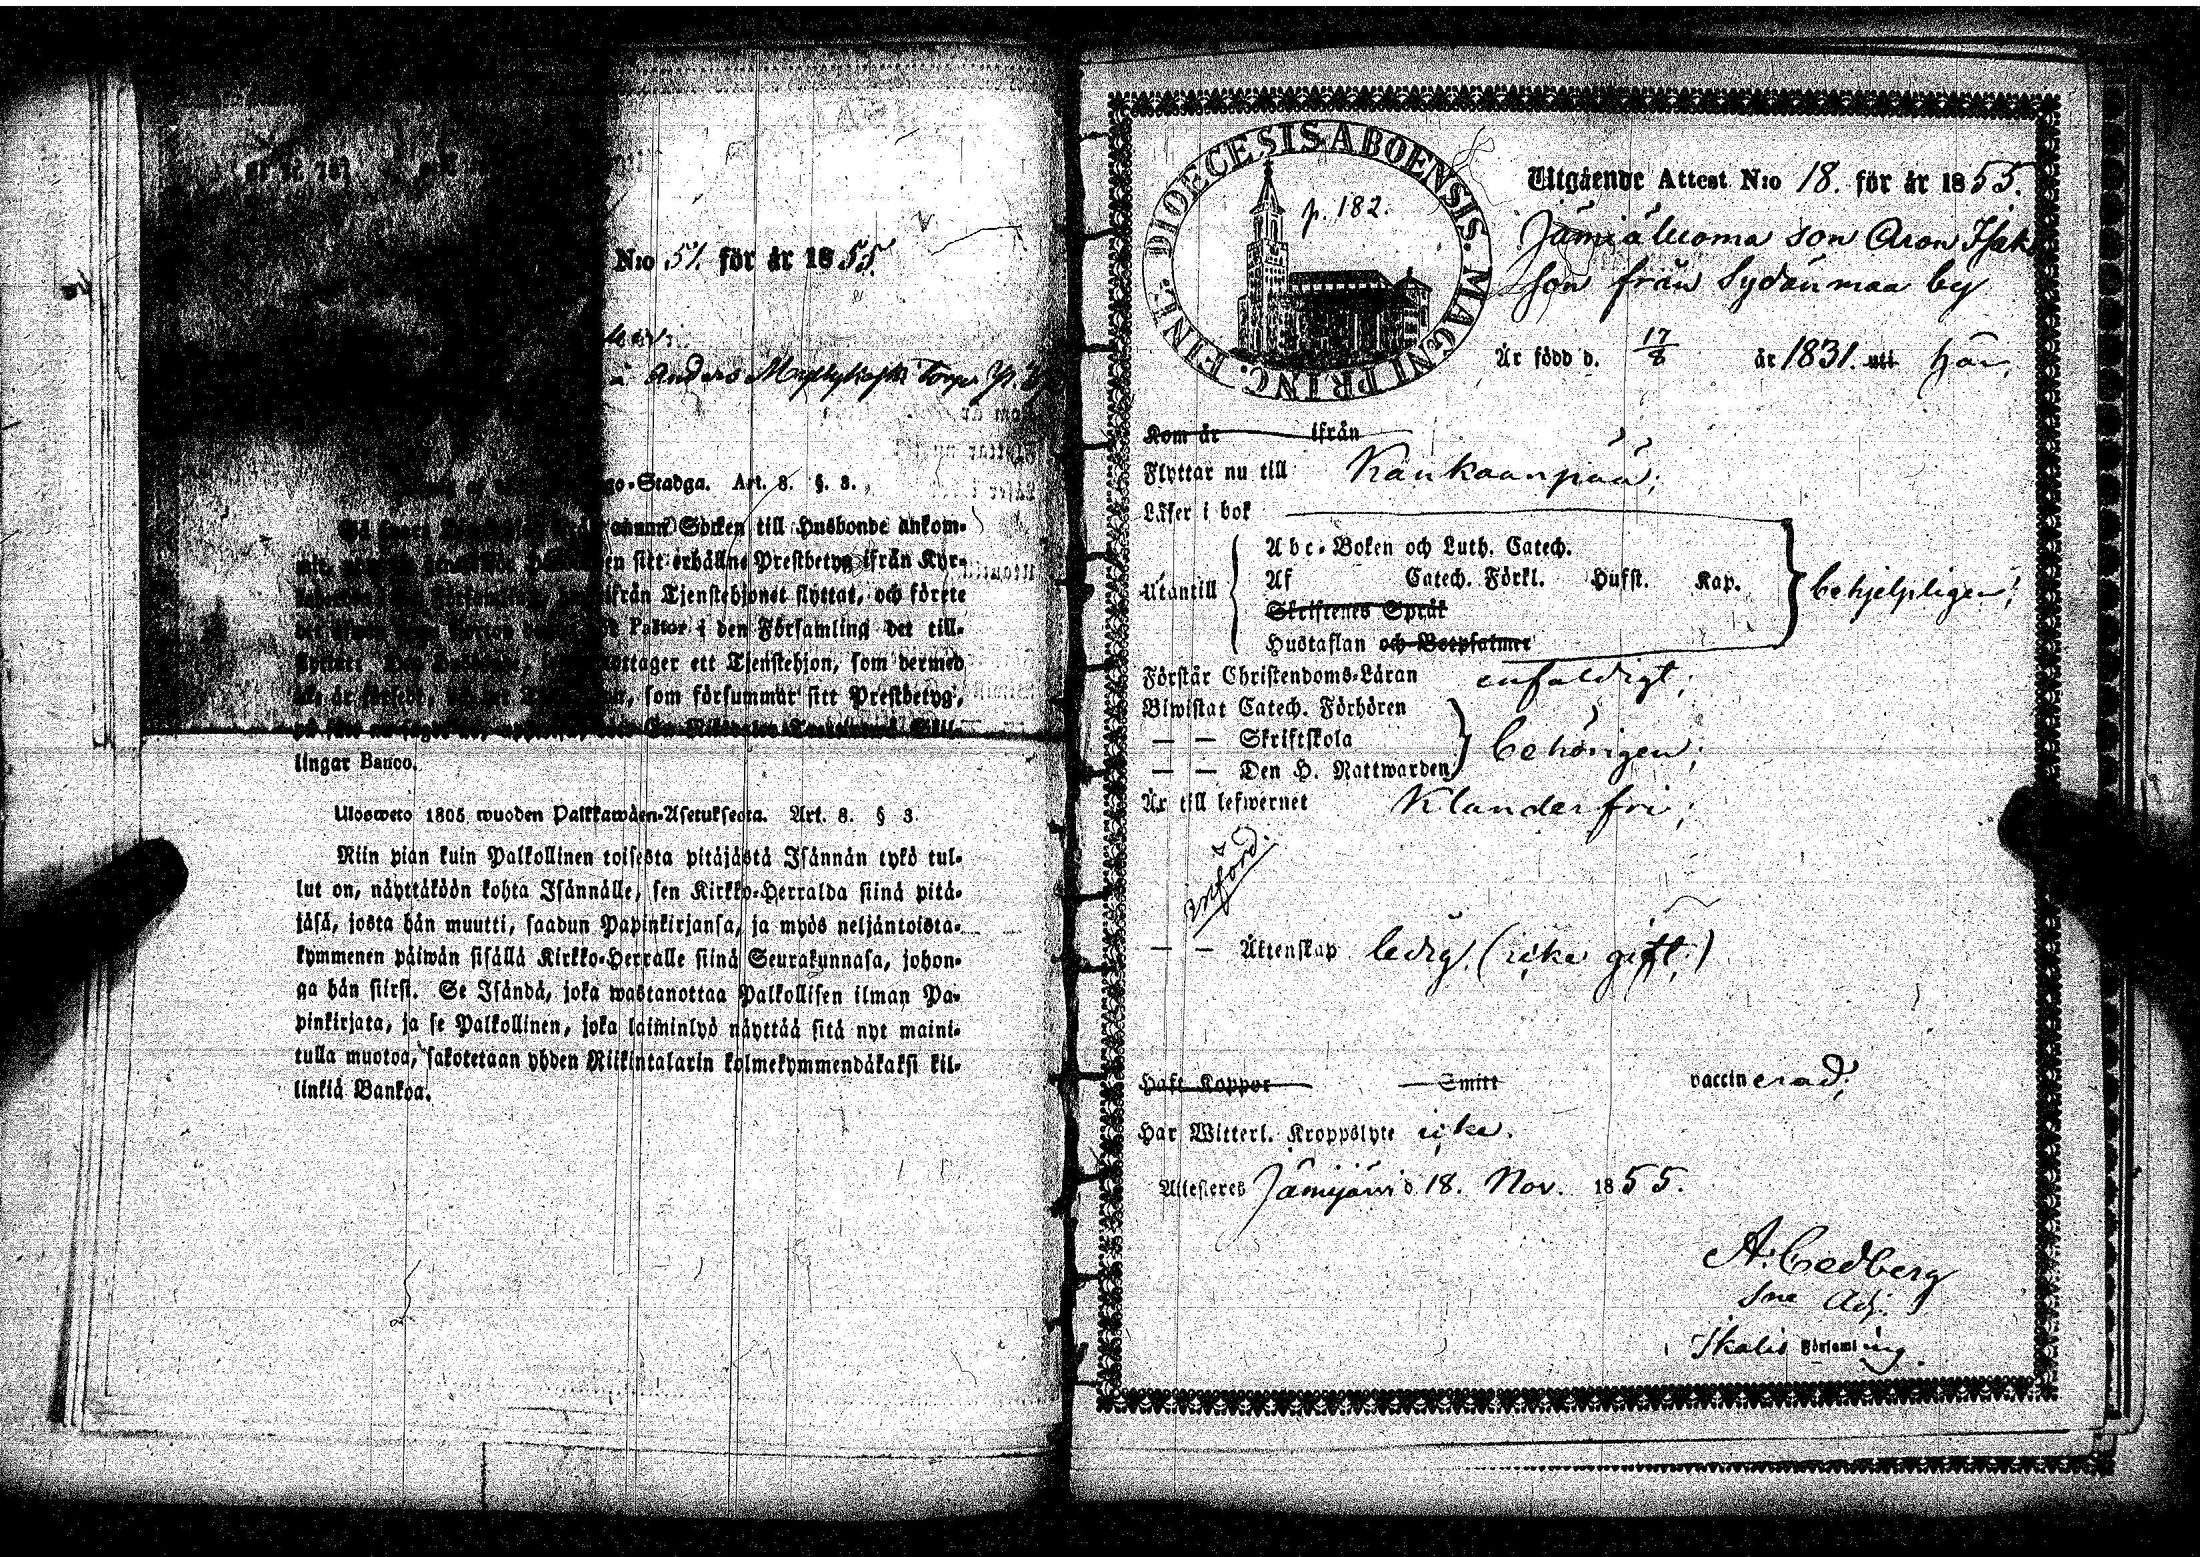 N:o 51. för år 1855.
Anders Torpr
go-Stadga. Art. 8. §. 3.
annan Socken till Husbonde ankom-
sitt erhållne Prestbetyg ifrån Kyr-
ifrån Tjenstehjonet flyttat, och förete
Pastor i den Församling det till-
mottager ett Tjenstehjon, som dermed
som försummar sitt Prestbetyg,
lingar Banco.
Ulosweto 1805 wuoden Palkkawäen-Asetuksesta. Art. 8. § 3.
Niin pian kuin Palkollinen toisesta pitäjästä Isännän tykö tul-
lut on, näyttäköön kohta Isännälle, sen Kirkko-Herralda siinä pitä-
jäsä, josta hän muutti, saadun Papinkirjansa, ja myös neljäntoista-
kymmenen päiwän sisällä Kirkko-Herralle siinä Seurakunnasa, johon-
ga hän siirsi. Se Isändä, joka wastanottaa Palkollisen ilman Pa-
pinkirjata, ja se Palkollinen, joka laiminlyö näyttää sitä nyt maini-
tulla muotoa, sakotetaan yhden Riikintalarin kolmekymmendäkaksi kil-
linkiä Bankoa.
DIOECESIS ABOENSIS. MAGNI PRINC. FINL.
p. 182.
Utgående Attest N:o 18. för år 1855.
son Aron Isak
son från Sydänmaa by
Är född d. 17/8 år 1831. uti här,
Kom år ifrån
Flyttar nu till Kankaanpää;
Läser i bok
Utantill
Abc-Boken och Luth. Catech.
Af Catech. Förkl. Husst. Kap.
Skriftenes Språk
Hustaflan och Botpsalmer
behjelpligen;
Förstår Christendoms-Läran enfaldigt;
Biwistat Catech. Förhören
— — Skriftskola
— — Den H. Nattwarden
behörigen;
Är till lefwernet Klanderfri;
införd.
— — Äktenskap ledig, (icke gift;)
Haft Koppor — Smitt vaccinerad;
Har Witterl. Kroppslyte icke.
Attesteres Jämijärvi d 18. Nov. 1855.
A. Cedberg
Sne Adj.
Ikalis Församling.